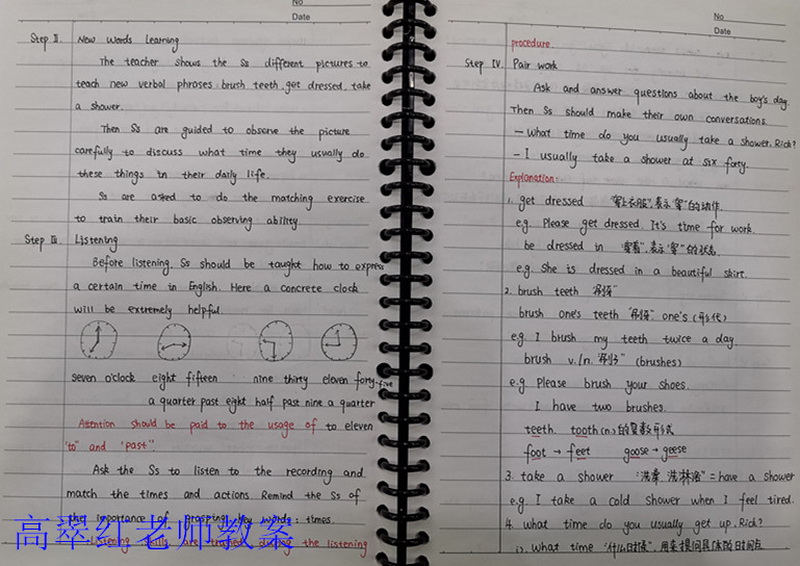 No
Date
Step II. New Words Learning
The teacher shows the Ss different pictures to
teach new verbal phrases: brush teeth, get dressed, take
a shower.
Then Ss are guided to observe the picture
carefully to discuss what time they usually do
these things in their daily life.
Ss are asked to do the matching exercise
to train their basic observing ability.
Step III. Listening
Before listening, Ss should be taught how to express
a certain time in English. Here a concrete clock
will be extremely helpful.
seven o'clock eight fifteen nine thirty eleven forty-five
a quarter past eight half past nine a quarter
Attention should be paid to the usage of to eleven
"to" and "past".
Ask the Ss to listen to the recording and
match the times and actions. Remind the Ss of
the importance of grasping key words: times.
Listening skills are trained during the listening
高翠红老师教案
No
Date
procedure.
Step IV. Pair work
Ask and answer questions about the boy's day.
Then Ss should make their own conversations.
— What time do you usually take a shower, Rick?
— I usually take a shower at six forty.
Explanation:
1. get dressed "穿上衣服",表示"穿"的动作
e.g. Please get dressed. It's time for work.
be dressed in "穿着",表示"穿"的状态
e.g. She is dressed in a beautiful skirt.
2. brush teeth "刷牙"
brush one's teeth "刷牙" one's (形代)
e.g. I brush my teeth twice a day.
brush v./n. "刷子" (brushes)
e.g. Please brush your shoes.
I have two brushes.
teeth. tooth (n.) 的复数形式
foot → feet goose → geese
3. take a shower "洗澡, 洗淋浴" = have a shower
e.g. I take a cold shower when I feel tired.
4. What time do you usually get up, Rick?
1). What time "什么时候", 用来提问具体的时间点